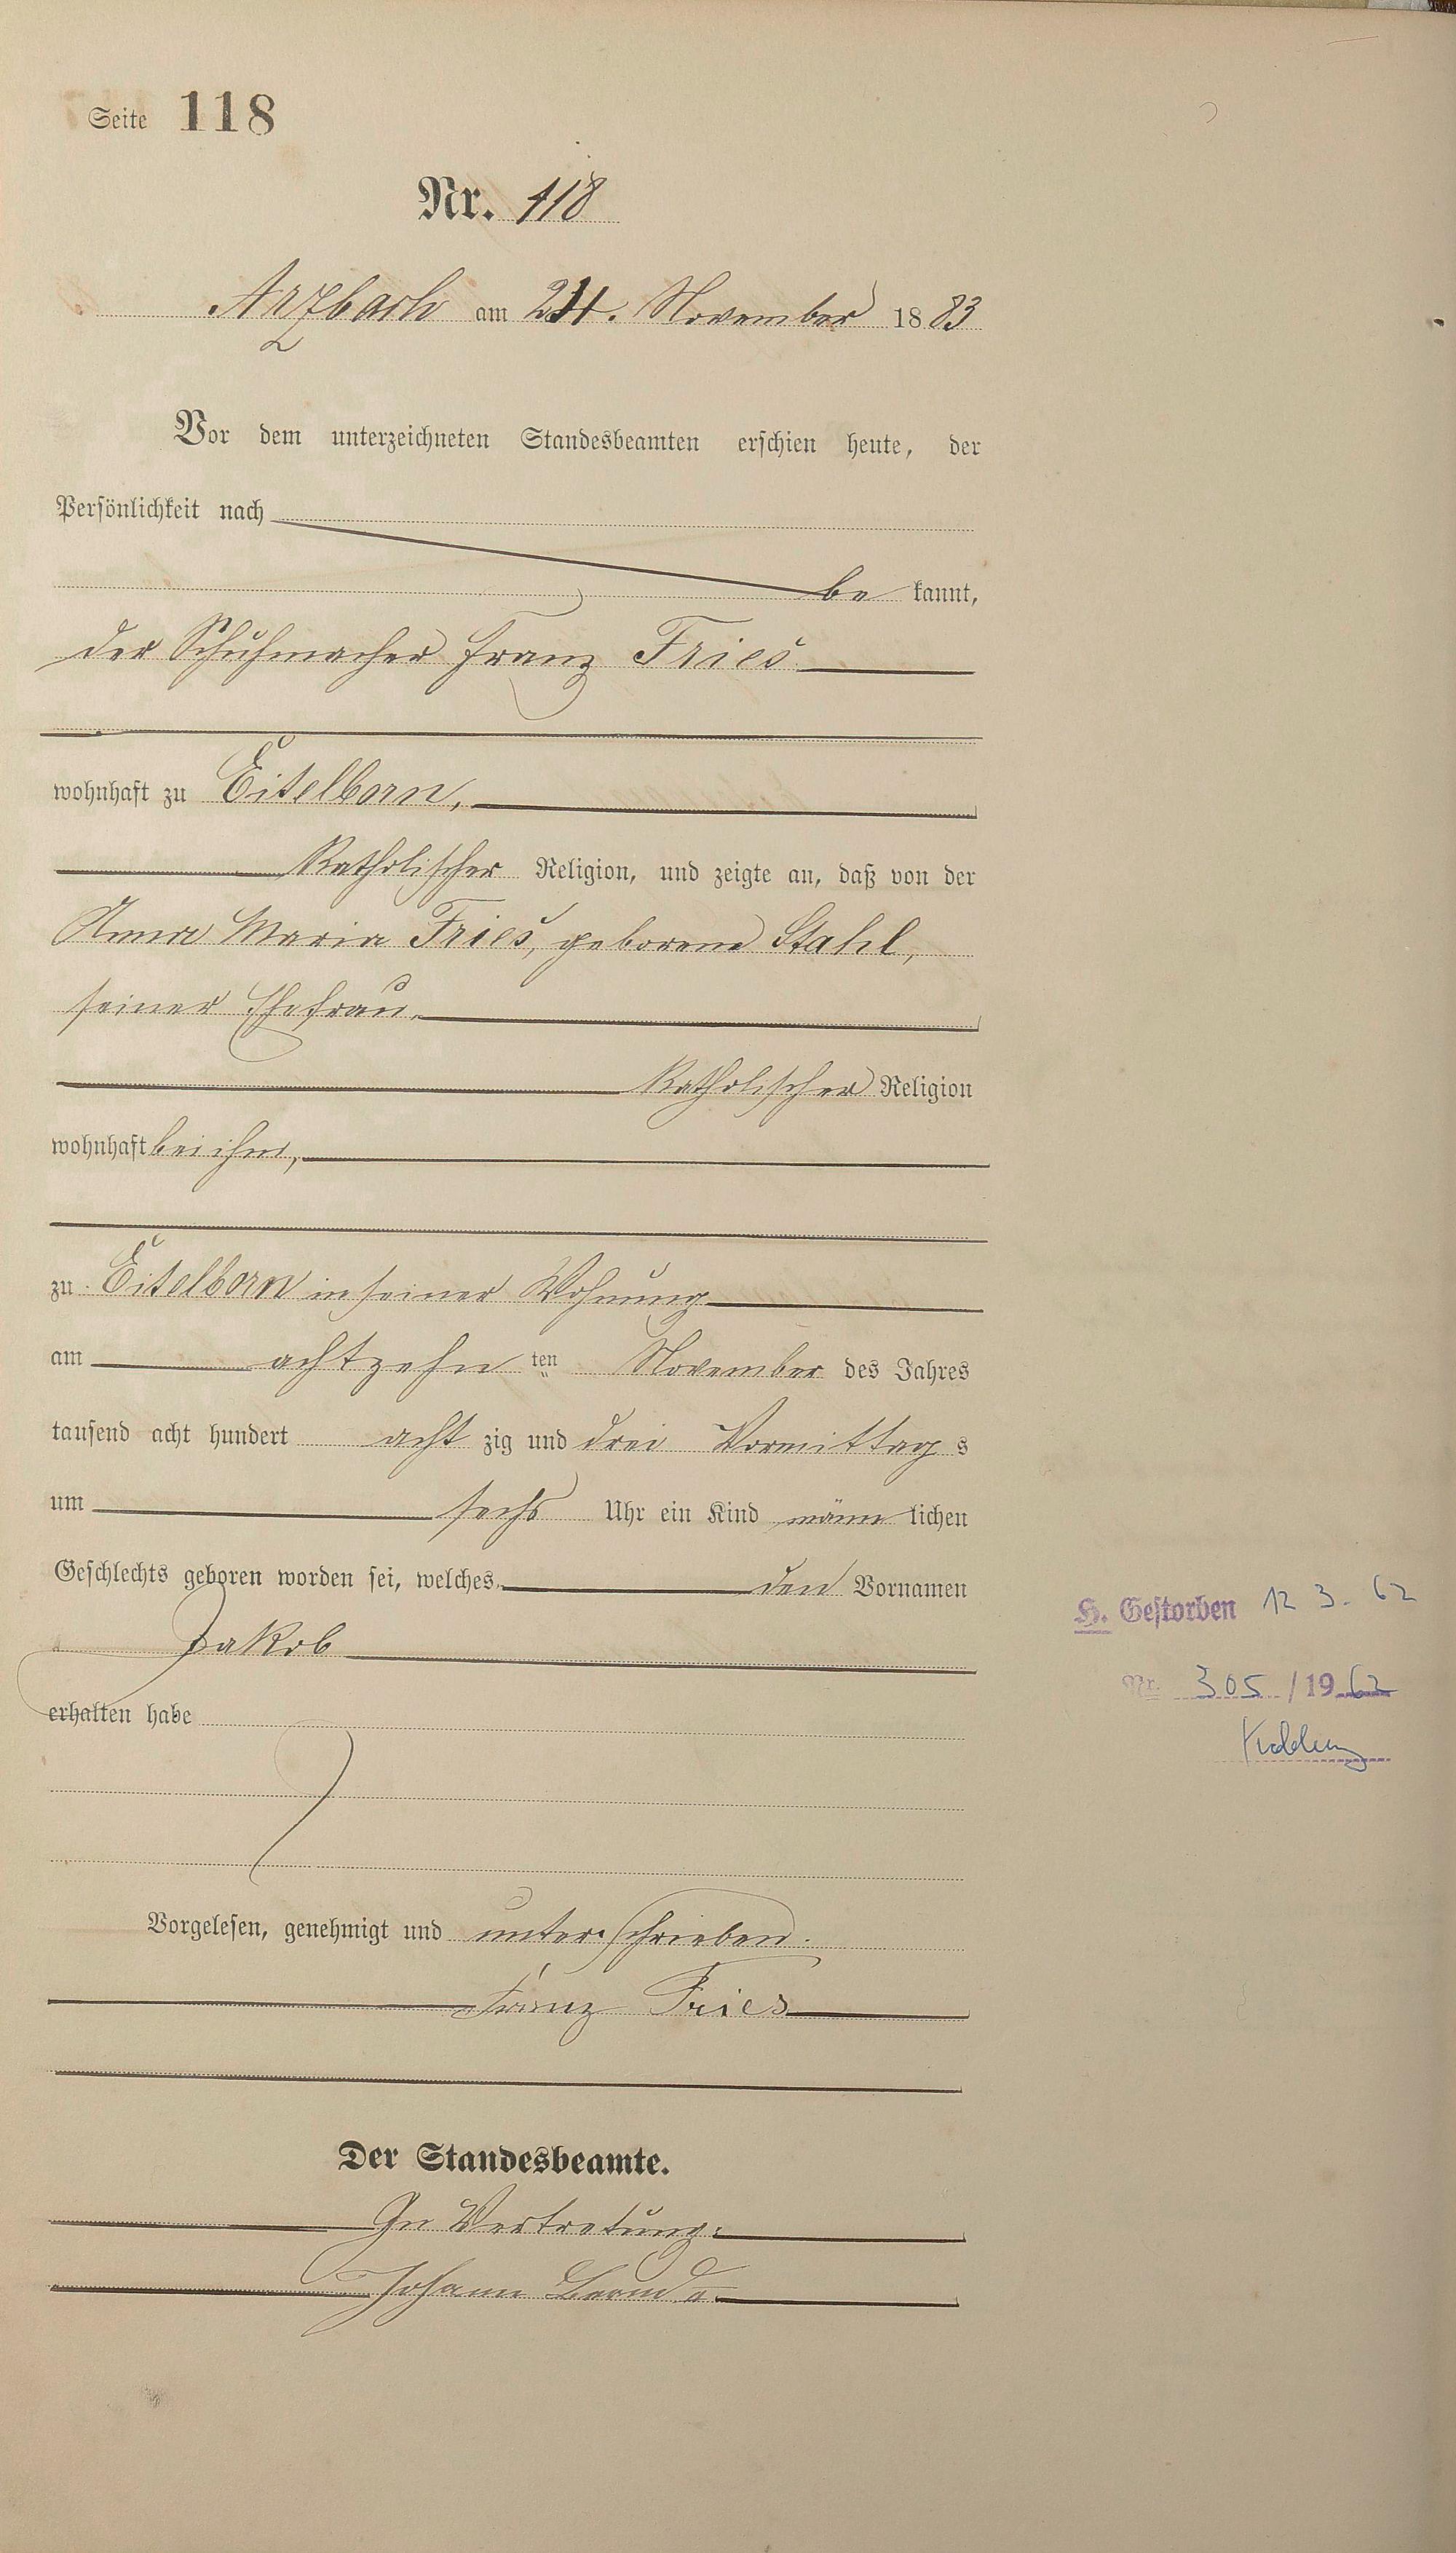 Seite 118
Nr. 118
Arzbach am 24. November 1883
Vor dem unterzeichneten Standesbeamten erschien heute, der
Persönlichkeit nach
be kannt,
der Schuhmacher Franz Fries
wohnhaft zu Eitelborn,
katholischer Religion, und zeigte an, daß von der
Anna Maria Fries, geborene Stahl,
seiner Ehefrau,
katholischer Religion
wohnhaft bei ihm,
zu Eitelborn in seiner Wohnung
am achtzehn ten November des Jahres
tausend acht hundert acht zig und drei Vormittag s
um sechs Uhr ein Kind männ lichen
Geschlechts geboren worden sei, welches den Vornamen
Jakob
erhalten habe
Vorgelesen, genehmigt und unterschrieben.
Franz Fries
Der Standesbeamte.
In Vertretung:
Johann
H. Gestorben 12 3. 62
Nr. 305 / 1962